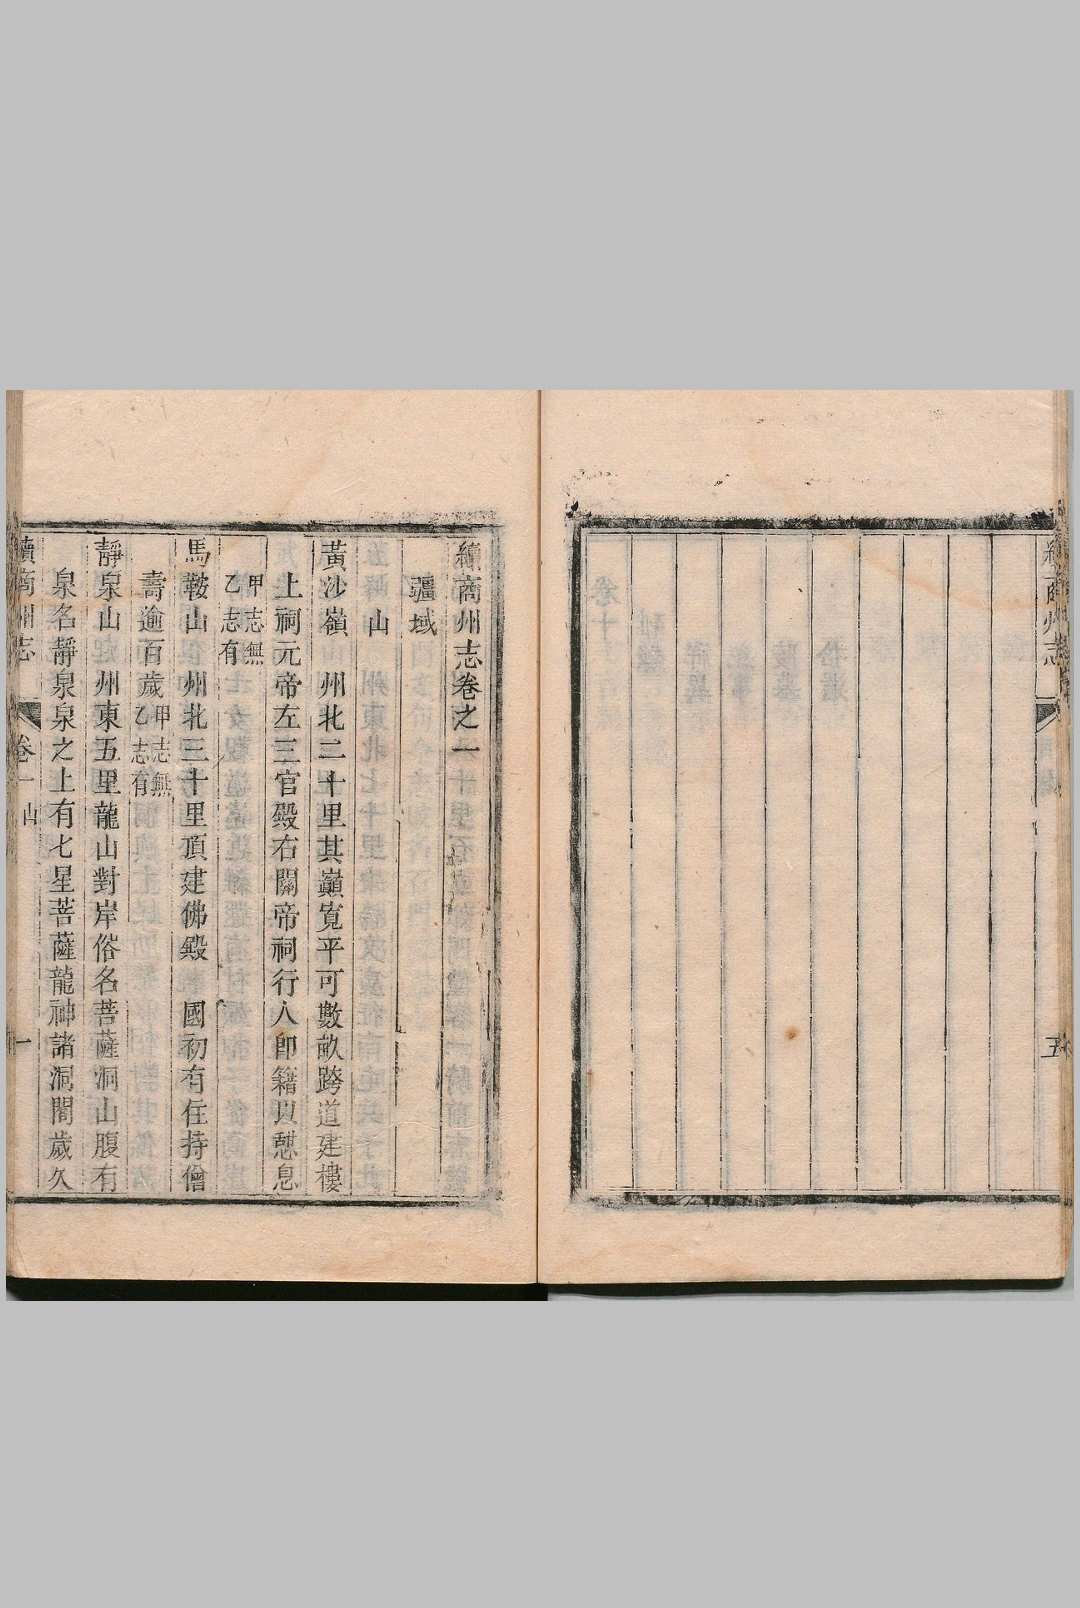 續商州志卷之一
疆域
山
黃沙嶺　州北二十里其巔寬平可數畝跨道建樓
上祠元帝左三官殿右關帝祠行人即籍以憩息
甲志無
乙志有
馬鞍山　州北三十里頂建佛殿　國初有住持僧
壽逾百歲甲志無
乙志有
靜泉山　州東五里龍山對岸俗名菩薩洞山腹有
泉名靜泉泉之上有七星菩薩龍神諸洞閣歲久
續商州志　卷一　山　一